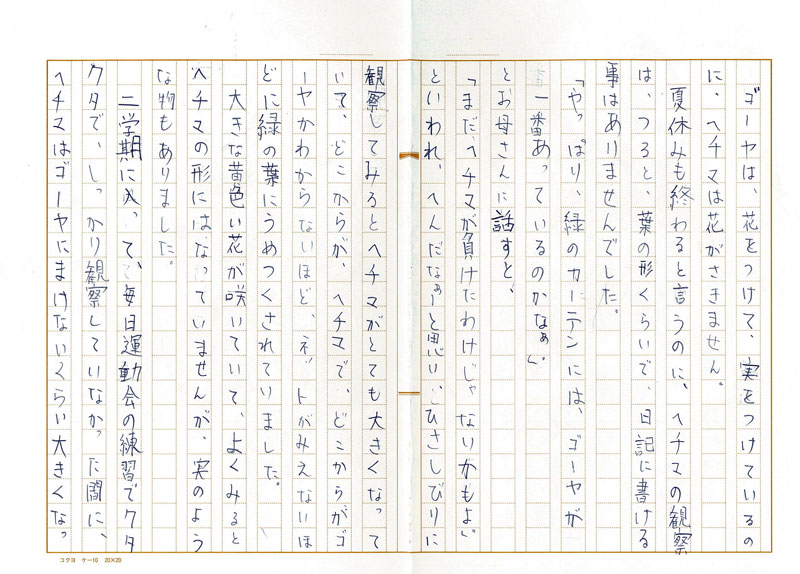 ゴーヤは、花をつけて、実をつけているの
に、ヘチマは花がさきません。
夏休みも終わると言うのに、ヘチマの観察
は、つると、葉の形くらいで、日記に書ける
事はありませんでした。
「やっぱり、緑のカーテンには、ゴーヤが
一番あっているのかなぁ」
とお母さんに話すと、
「まだ、ヘチマが負けたわけじゃないかもよ」
といわれ、へんだなぁーと思い、ひさしびりに
観察してみるとヘチマがとても大きくなって
いて、どこからが、ヘチマで、どこからがゴ
ーヤかわからないほど、ネットがみえないほ
どに緑の葉にうめつくされていました。
大きな黄色い花が咲いていて、よくみると
ヘチマの形にはなっていませんが、実のよう
な物もありました。
二学期に入って、毎日運動会の練習でクタ
クタで、しっかり観察していなかった間に、
ヘチマはゴーヤにまけないくらい大きくなっ
コクヨ ケー10 20×20